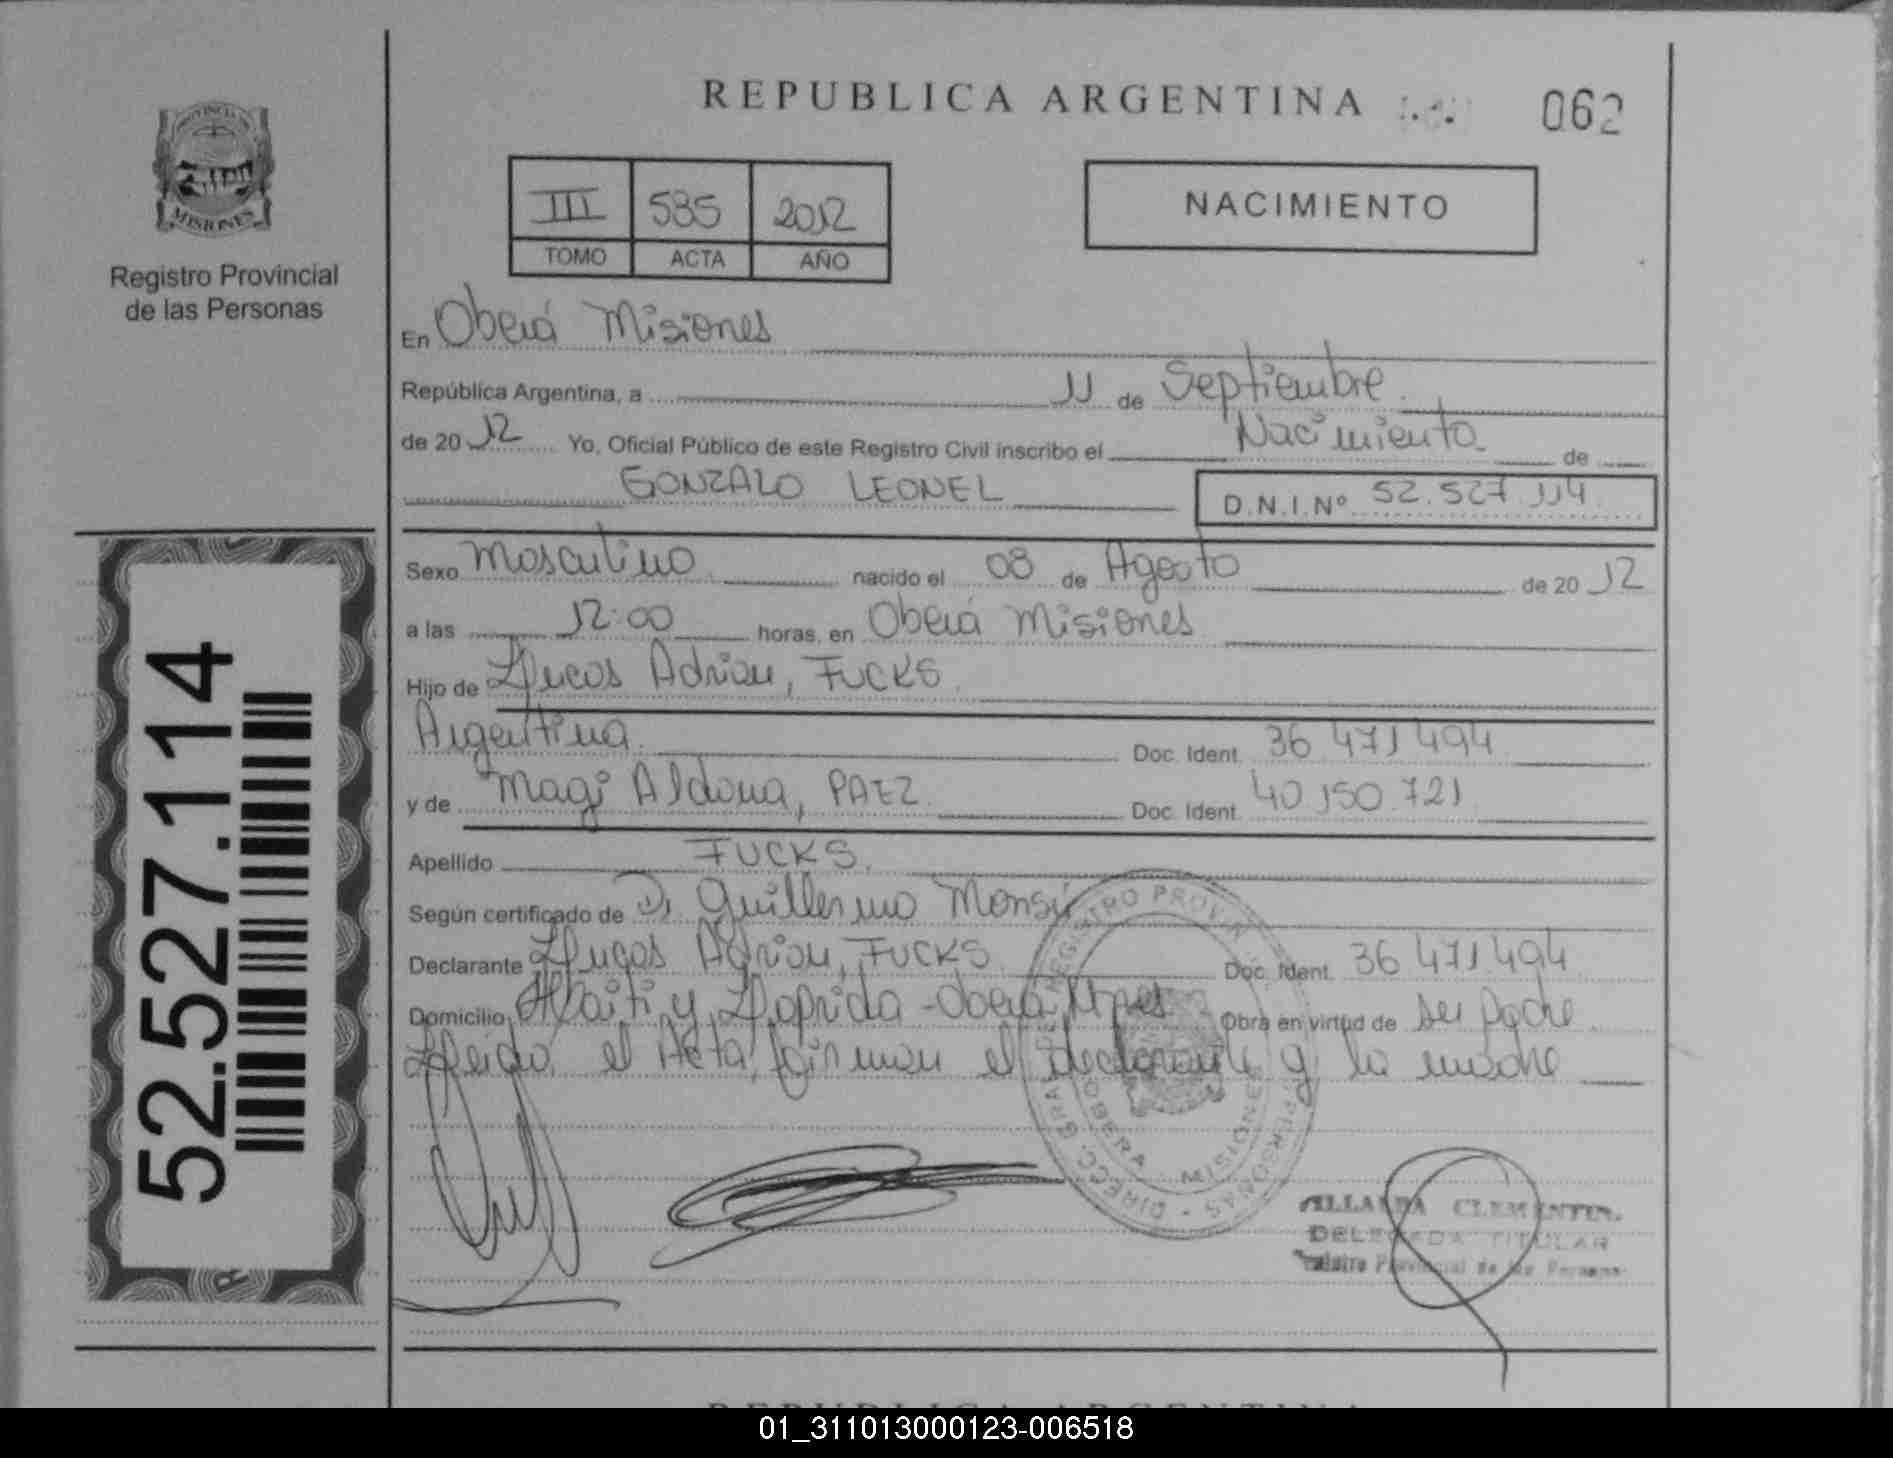 PROVINCIA DE
MISIONES
Registro Provincial
de las Personas
REPUBLICA ARGENTINA
062
III 585 2012
TOMO ACTA AÑO
NACIMIENTO
En Oberá Misiones
República Argentina, a 11 de Septiembre
de 2012 Yo, Oficial Público de este Registro Civil inscribo el Nacimiento de
GONZALO LEONEL D.N.I.Nº 52.527.114
Sexo Masculino nacido el 08 de Agosto de 2012
a las 12:00 horas, en Oberá Misiones
Hijo de Lucas Adrian, FUCKS
Argentina Doc. Ident. 36 471 494
y de Magi Aldana, PAEZ Doc. Ident. 40 150 721
Apellido FUCKS.
Según certificado de Dr Guillermo
Declarante Lucas Adrian, FUCKS Doc. Ident. 36 471 494
Domicilio Haiti y Laprida - Oberá Mnes Obra en virtud de ser padre
Leida el Acta, firman el declarante y la madre
DIRECC. GRAL. DE REGISTRO PROVINCIAL PERSONAS
OBERA MISIONES
CLEMENTIN
DELEGADA TITULAR
Registro Provincial de las Personas
52.527.114
REPUBLICA ARGENTINA
01_311013000123-006518